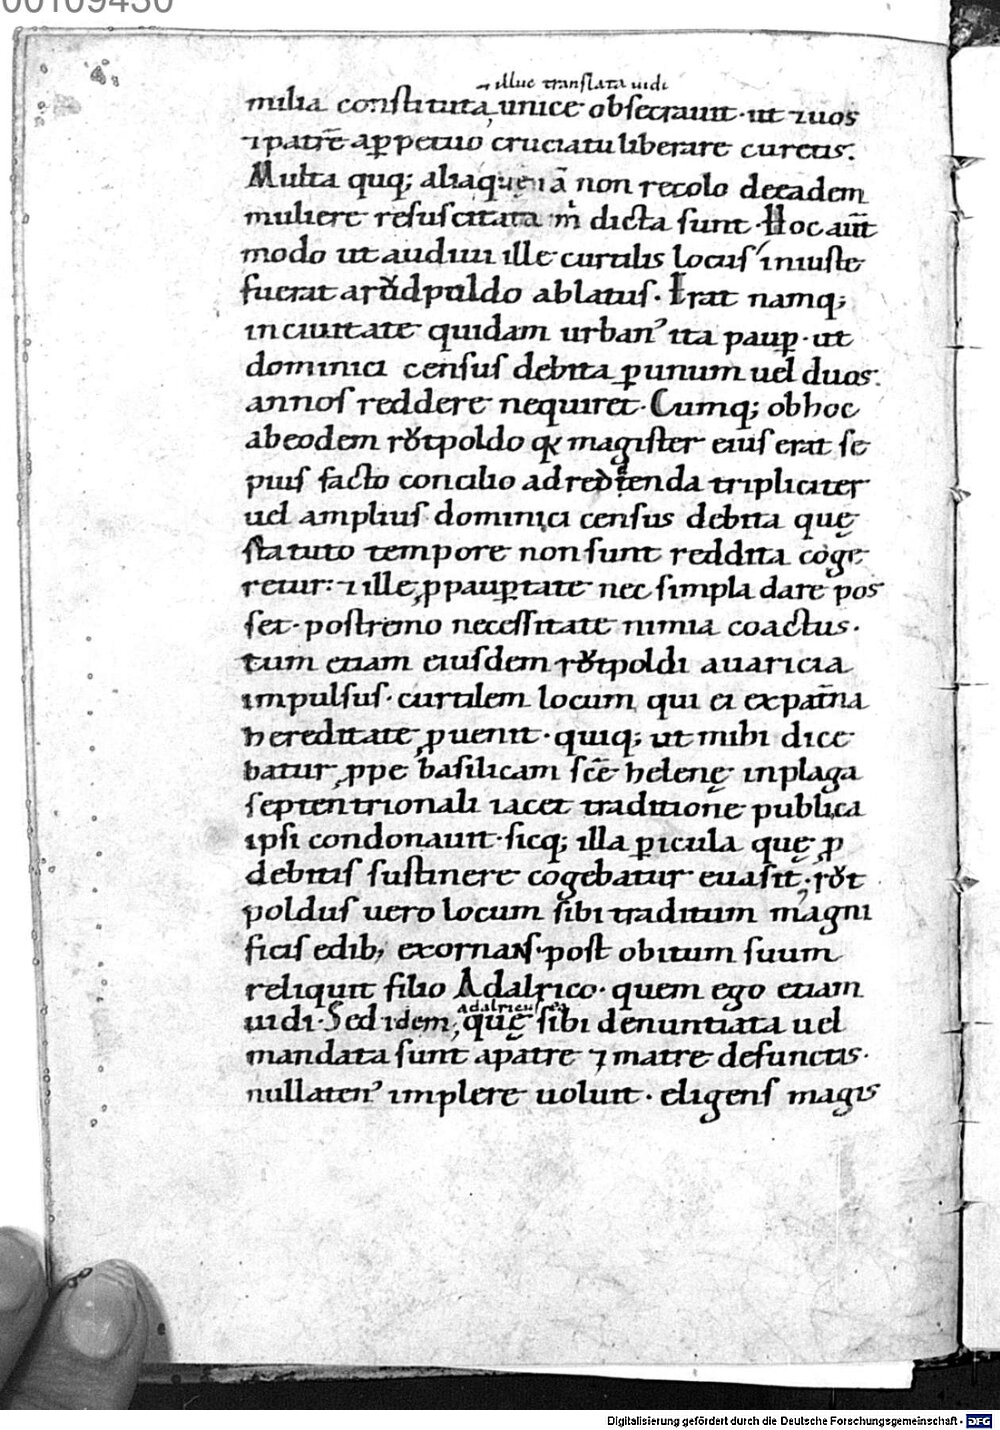 00109430
⁊ illuc translata uidi
milia constituta, unice obsecrauit · ut ⁊ uos
⁊ patrē a ꝑpetuo cruciatu liberare curetis.
Multa quoq; alia quę iā non recolo de eadem
muliere resuscitata m̄ dicta sunt · Hoc aūt
modo ut audiui ille curtilis locus iniuste
fuerat a rǒdpoldo ablatus · Erat namq;
in ciuitate quidam urban᾽ ita paup̱ · ut
dominici census debita ꝑ unum uel duos
annos reddere nequiret · Cumq; ob hoc
ab eodem rǒtpoldo qͥ magister eius erat se
pius facto concilio ad reddenda tripliciter
uel amplius dominici census debita quę
statuto tempore non sunt reddita coge
retur: ⁊ ille ꝓ pauꝑtate nec simpla dare pos
set · postremo necessitate nimia coactus ·
tum etiam eiusdem rǒtpoldi auaricia
impulsus · curtilem locum qui ei ex pat̄na
hereditate ꝓuenit · quiq; ut mihi dice
batur ꝓpe basilicam scē helenę in plaga
septentrionali iacet traditione publica
ipsi condonauit · sicq; illa ꝑicula quę ꝓ
debitis sustinere cogebatur euasit; rǒt
poldus uero locum sibi traditum magni
ficis edib; exornans · post obitum suum
reliquit filio Adalrico · quem ego etiam
adalricus ea
uidi · Sed idem, quę sibi denuntiata uel
mandata sunt a patre ⁊ matre defunctis ·
nullaten᾽ implere uoluit · eligens magis
Digitalisierung gefördert durch die Deutsche Forschungsgemeinschaft - DFG